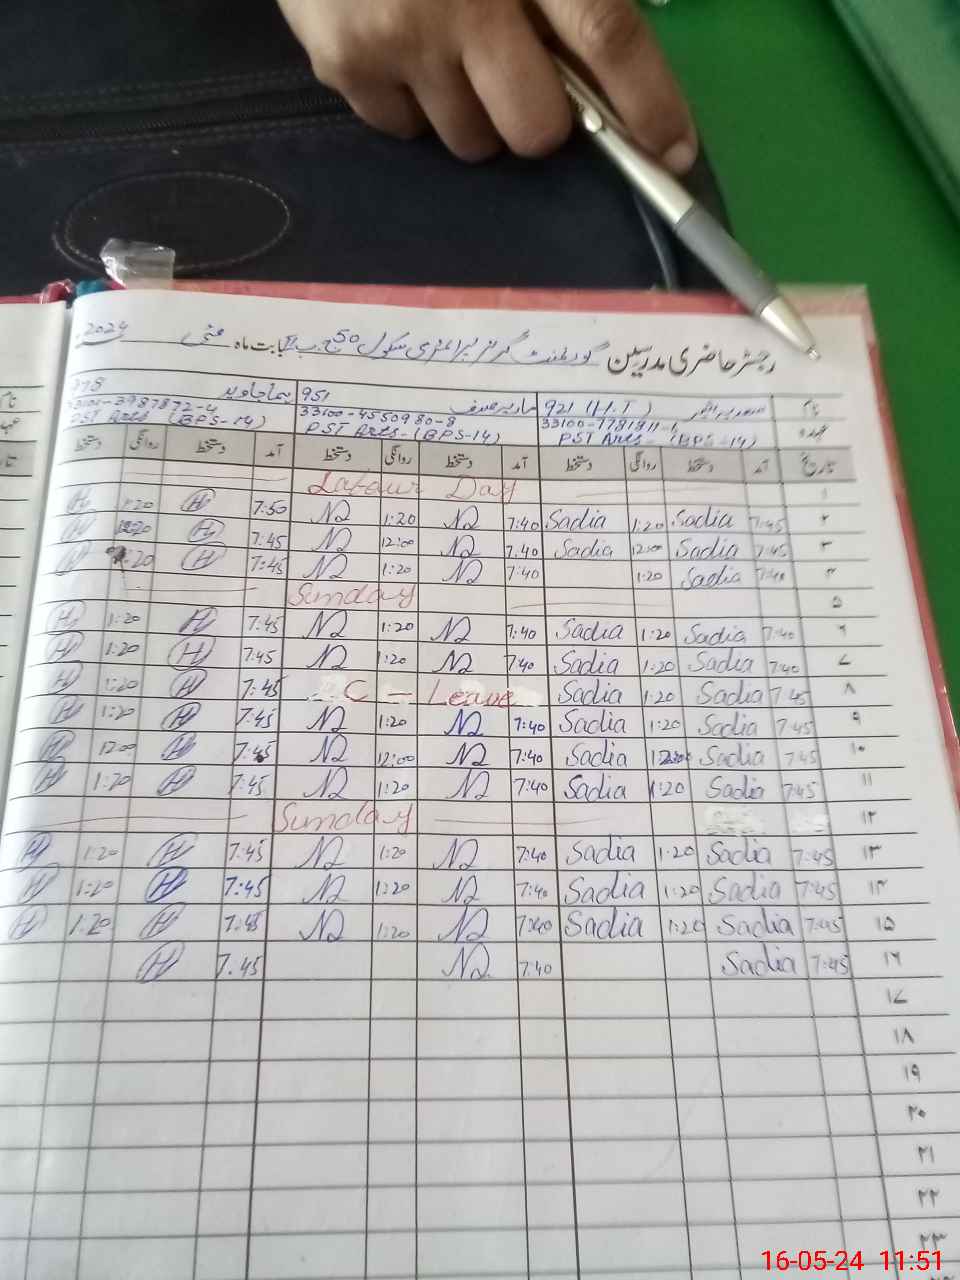 رجسٹر حاضری مدرسین گورنمنٹ گرلز پرائمری سکول 50 ج۔ب بابت ماہ مئی 2024
نام 921 (H.T) 951 ہما جاوید 978
عہدہ 33100-4550980-8
PST Arts - (BPS-14) PST Arts - (BPS-14) PST Arts (BPS-14)
تاریخ آمد دستخط روانگی دستخط آمد دستخط روانگی دستخط آمد دستخط روانگی دستخط
۱ Labour Day
۲ 7:45 Sadia 1:20 Sadia 7:40 1:20 7:50 H 1:20 H
۳ 7:45 Sadia 12:00 Sadia 7:40 12:00 7:45 H H
۴ 7:40 Sadia 1:20 7:40 1:20 7:45 H 1:20 H
۵ Sunday
۶ 7:40 Sadia 1:20 Sadia 7:40 1:20 7:45 H 1:20 H
۷ 7:40 Sadia 1:20 Sadia 7:40 1:20 7:45 H 1:20 H
۸ 7:45 Sadia 1:20 Sadia C - Leave 7:45 H 1:20 H
۹ 7:45 Sadia 1:20 Sadia 7:40 1:20 7:45 H 1:20 H
۱۰ 7:45 Sadia Sadia 7:40 12:00 7:45 H 12:00 H
۱۱ 7:45 Sadia 1:20 Sadia 7:40 1:20 7:45 H 1:20 H
۱۲ Sunday
۱۳ 7:45 Sadia 1:20 Sadia 7:40 1:20 7:45 H 1:20 H
۱۴ 7:45 Sadia 1:20 Sadia 7:40 1:20 7:45 H 1:20 H
۱۵ 7:45 Sadia 1:20 Sadia 7:40 1:20 7:45 H 1:20 H
۱۶ 7:45 Sadia 7:40 7.45 H
۱۷
۱۸
۱۹
۲۰
۲۱
۲۲
۲۳
16-05-24 11:51